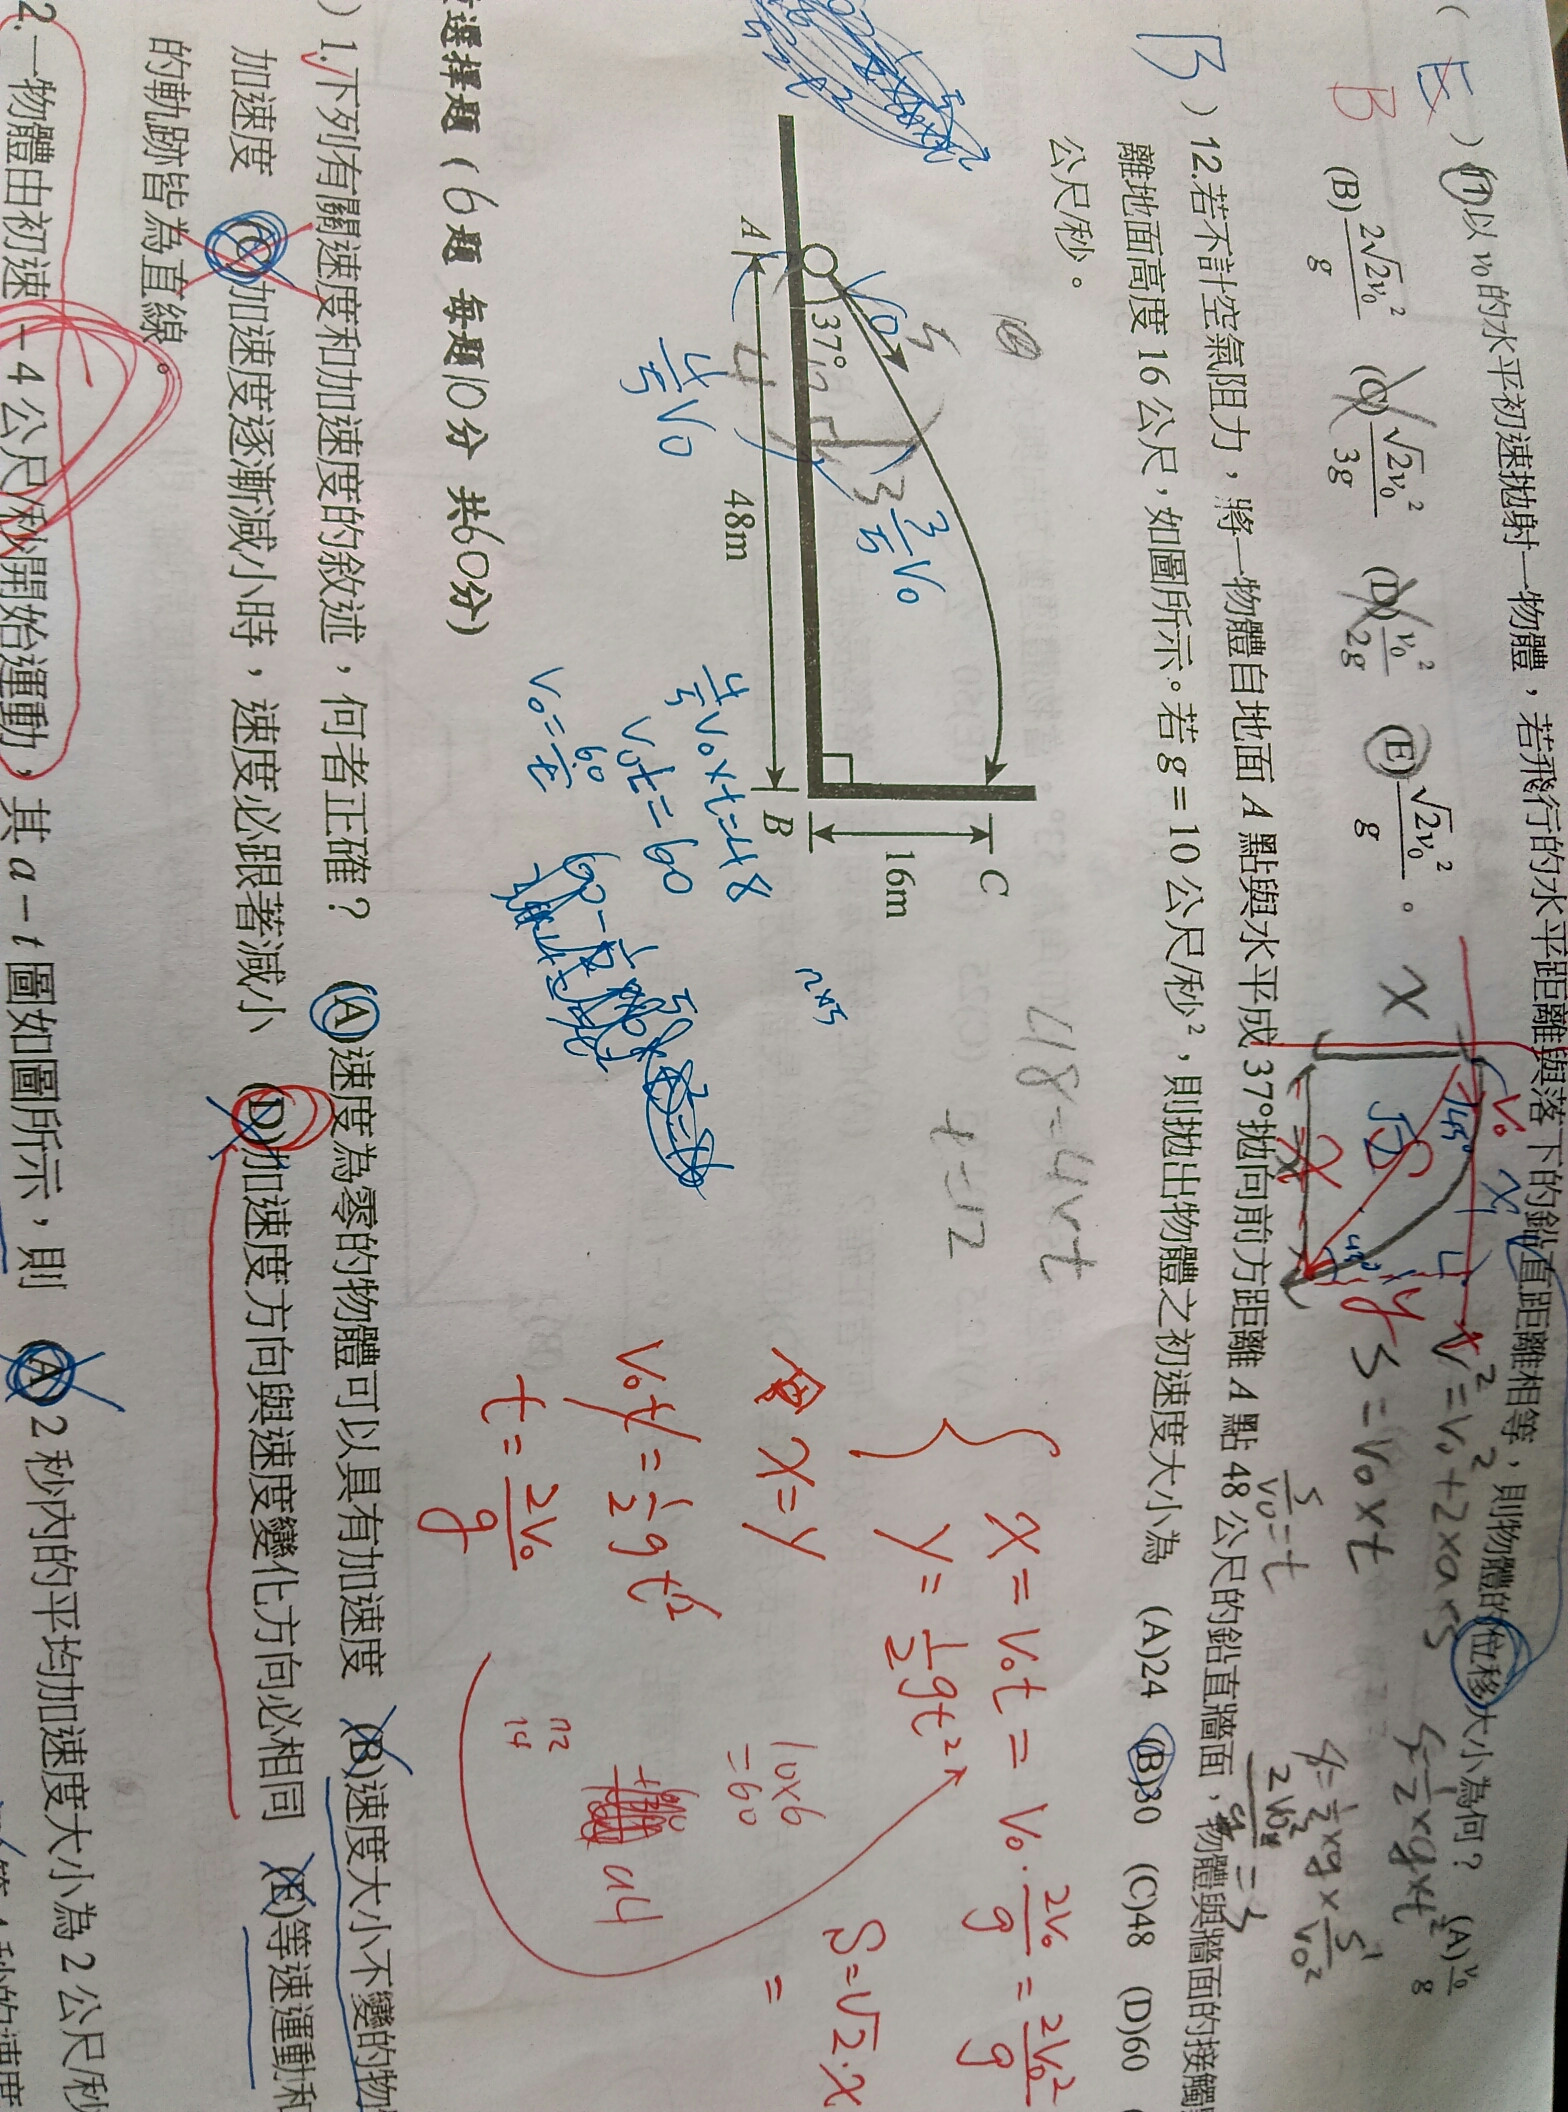 ( E ) 11.以 v₀ 的水平初速拋射一物體，若飛行的水平距離與落下的鉛直距離相等，則物體的位移大小為何？ (A) v₀/g
B
(B) 2√2v₀²/g (C) √2v₀²/3g (D) v₀²/2g (E) √2v₀²/g 。
x
V₀
x
45°
√2
S
x
y
V² = V₀² + 2×a×S
S = V₀×t
S/V₀ = t
B ) 12.若不計空氣阻力，將一物體自地面 A 點與水平成 37°拋向前方距離 A 點 48 公尺的鉛直牆面，物體與牆面的接觸
離地面高度 16 公尺，如圖所示。若 g = 10 公尺/秒²，則拋出物體之初速度大小為 (A)24 (B)30 (C)48 (D)60 (
公尺/秒。
37°
5
4
3
3/5 V₀
4/5 V₀
A
48m
B
16m
C
4/5 V₀×t=48
V₀t=60
V₀=60/t
48=4vt
x = V₀t = V₀·2V₀/g = 2V₀²/g
y = 1/2 gt²
x=y
V₀t = 1/2 gt²
t = 2V₀/g
S=√2·x
=
10×6
=60
選擇題 (6題 每題10分 共60分)
) 1.下列有關速度和加速度的敘述，何者正確？ (A)速度為零的物體可以具有加速度 (B)速度大小不變的物
加速度 (C)加速度逐漸減小時，速度必跟著減小 (D)加速度方向與速度變化方向必相同 (E)等速運動和
的軌跡皆為直線。
2.一物體由初速－4 公尺/秒開始運動，其 a－t 圖如圖所示，則 (A) 2 秒內的平均加速度大小為 2 公尺/秒